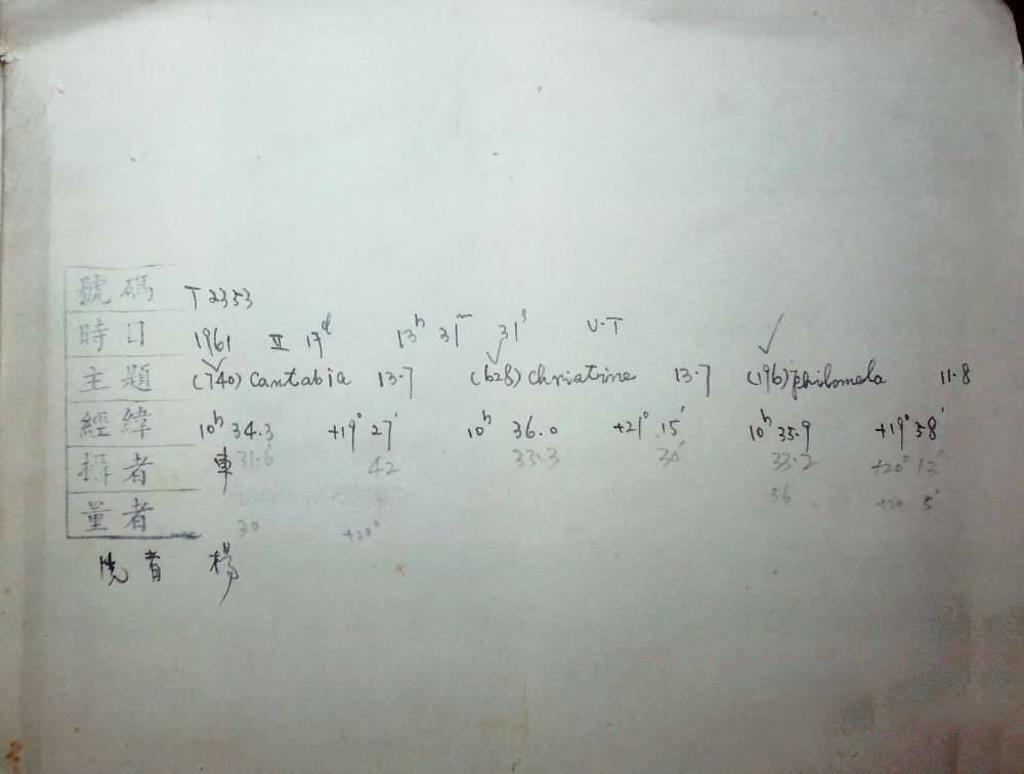 號碼 T2353
時日 1961 II 17d 13h 31m 31s U.T
主題 (740) Cantabia 13.7 (628) Christine 13.7 (196) Philomela 11.8
經緯 10h 34.3 +19° 27' 10h 36.0 +21° 15' 10h 35.9 +19° 58'
攝者 車 31.6 42 33.3 30' 33.2 +20° 12'
36 +20 5'
量者 30 +20°
洗者 楊